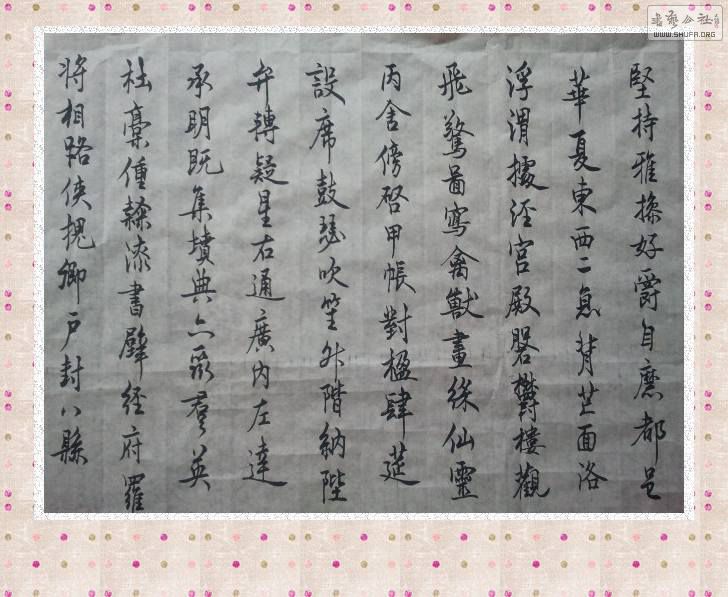 堅持雅操好爵自縻都邑
華夏東西二京背芒面洛
浮渭據涇宮殿磐鬱樓觀
飛驚圖寫禽獸畫綵仙靈
丙舍傍啓甲帳對楹肆筵
設席鼓瑟吹笙升階納陛
弁轉疑星右通廣內左達
承明既集墳典亦聚羣英
杜稾鍾隸漆書壁經府羅
將相路俠槐卿戶封八縣
書藝公社
WWW.SHUFA.ORG